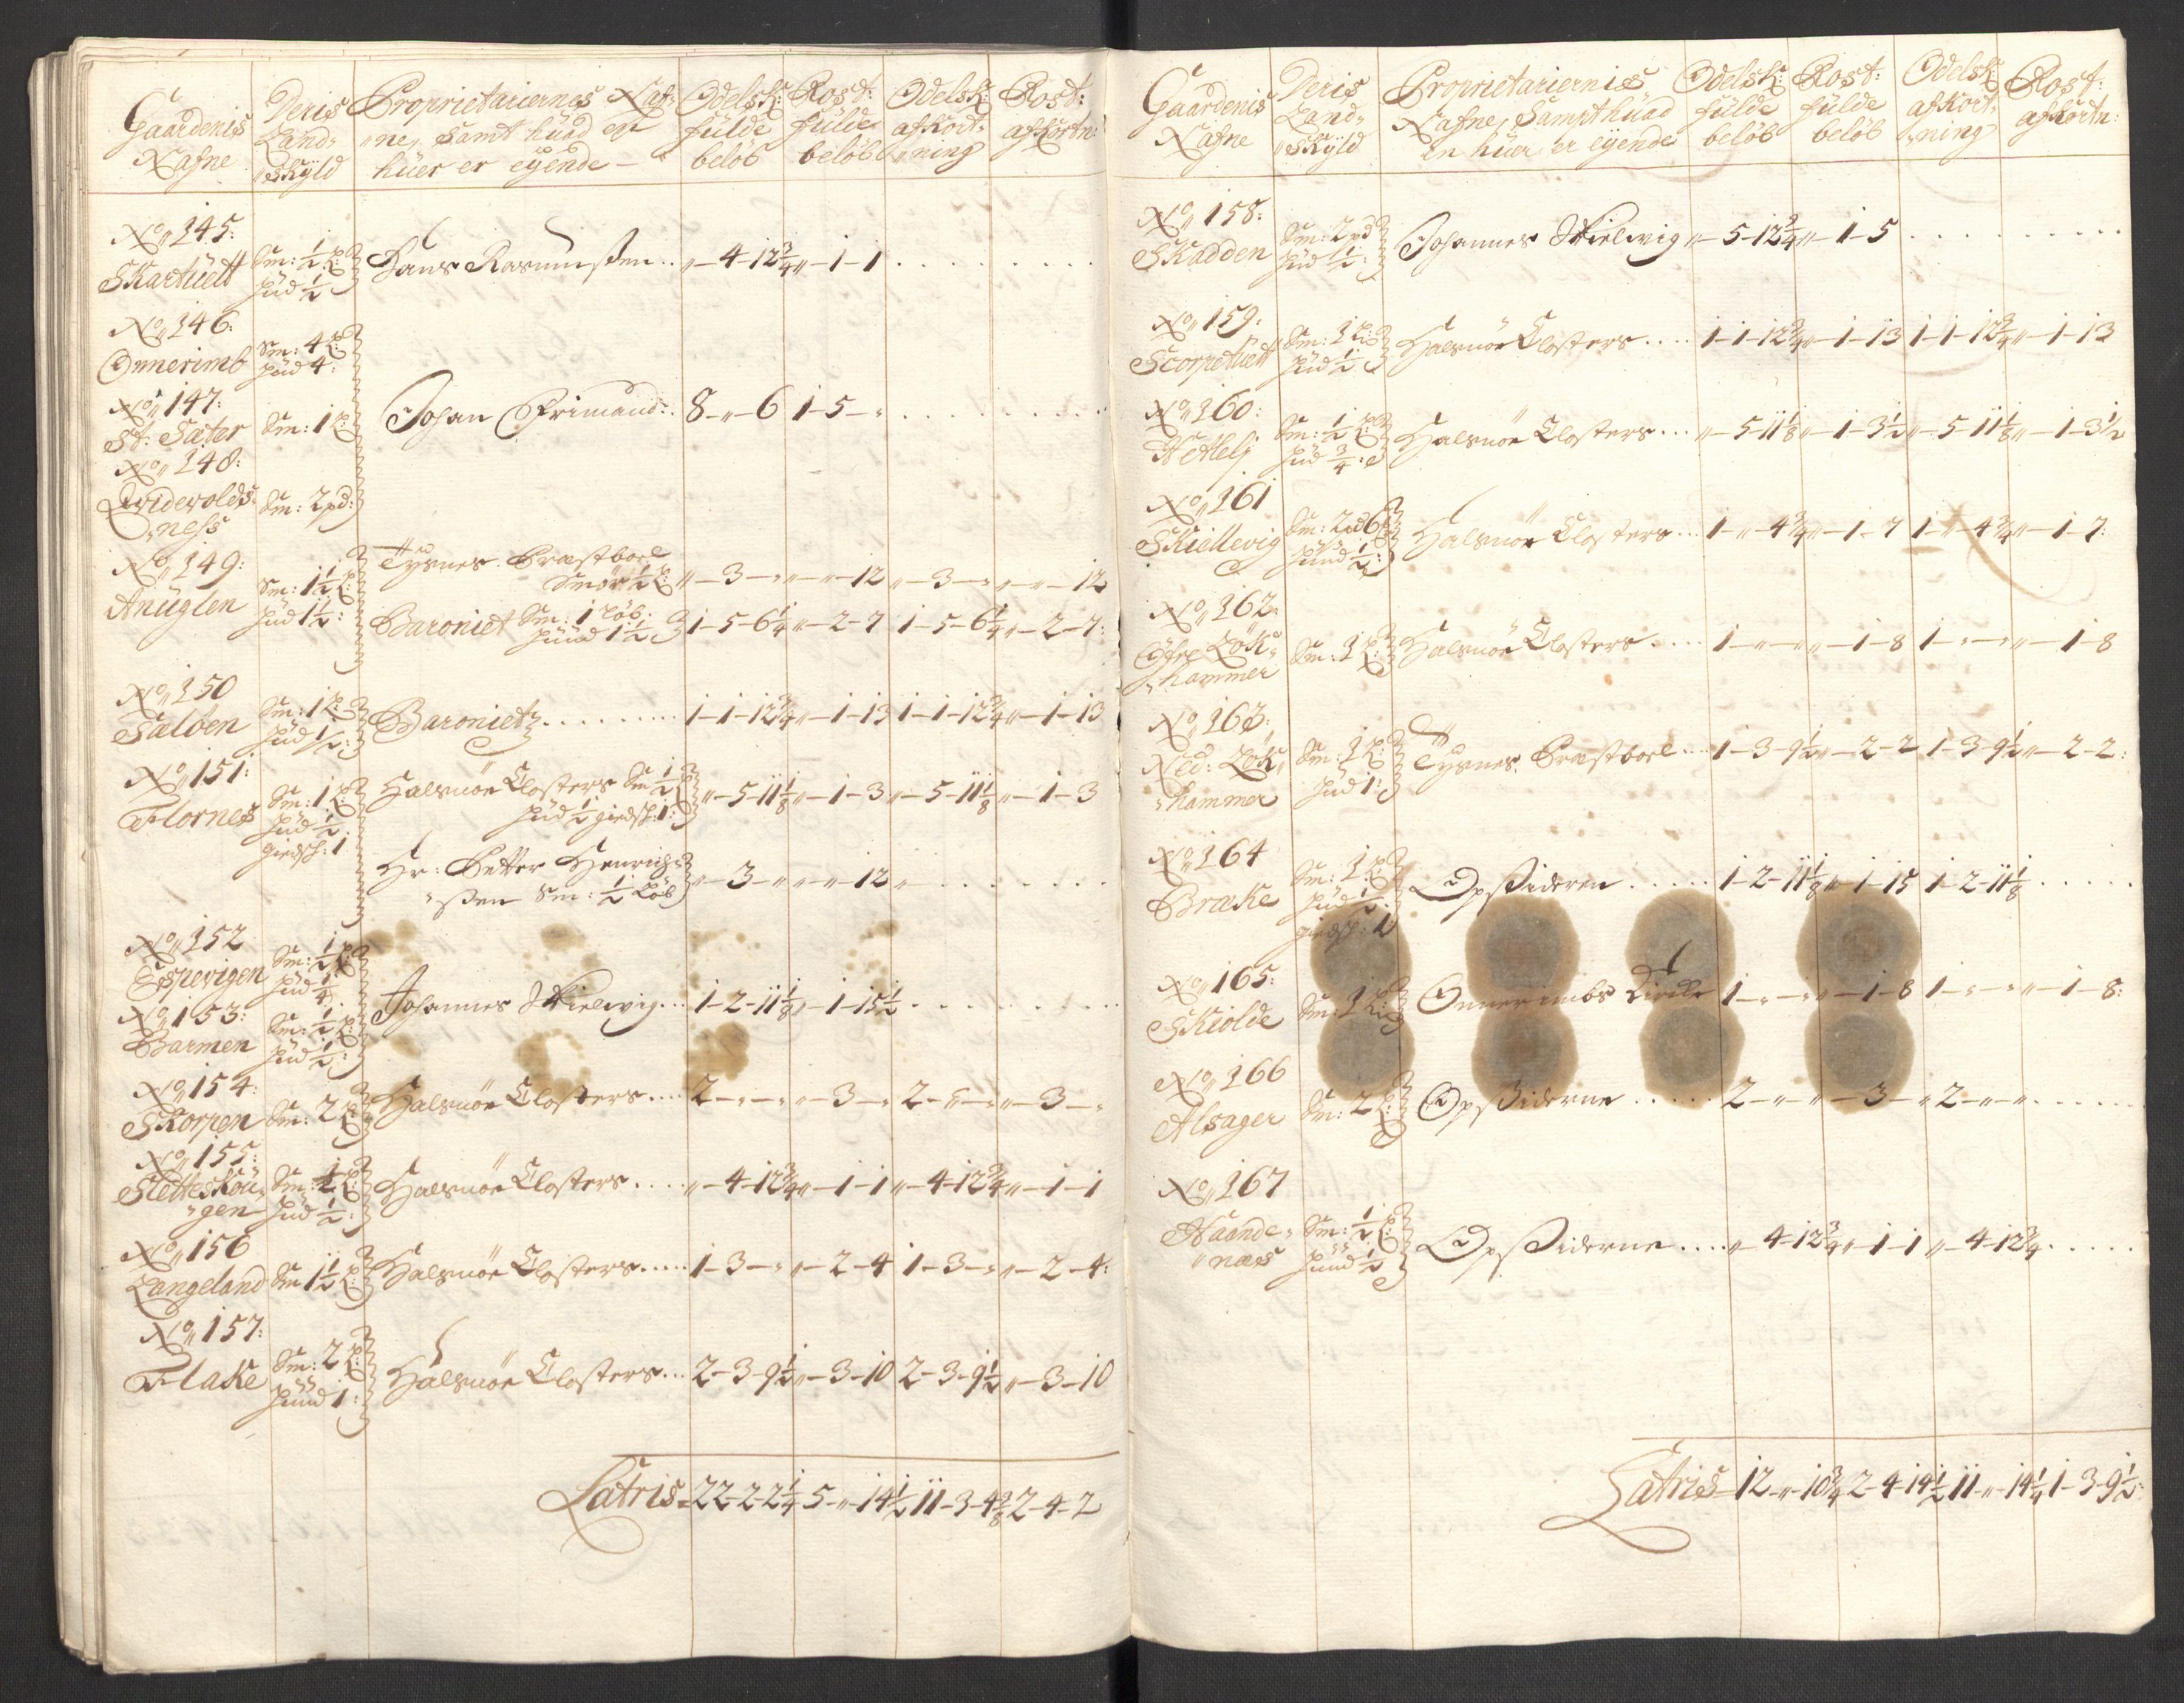 Gaardenis Nafne | Deris Land„ „skyld | Proprietariernes Naf„ „ne, samt huad en huer er eyende – | Odelsk: fulde beløb | Rost: fulde beløb | Odelsk afkort„ „ning | Rost: afkortn:
No„ 145:
Skartuett | Sm: ½ L: hud ½ | Hans Rasmussen .. | „– 4–12¾ | „– 1–1 . . . .
No„ 146:
Onnerimb | Sm: 4 L: hud 4:
No„ 147:
St: Sæter | Sm: 1 L: | Johan Frimand: . | 8–„–6 | 1–5–„ . . . .
No„ 148:
Qvidevolds„ „ness | Sm: 2 pd:
No„ 149:
Anuglen | Sm: 1½ L: hud 1½: | Tysnes Præstboel Smør ½ L: | „–3–„ | „–„–12 | „–3–„ | „–„–12
Baroniet Sm: 1 løb: huud 1½ | 1–5–6¼ | „–2–7 | 1–5–6¼ | „–2–7:
No„ 150
Salöen | Sm: 1 L: hud ½: | Baroniet . . . . | 1–1–12¾ | „–1–13 | 1–1–12¾ | „–1–13
No„ 151:
Flornes | Sm: 1 L: hud ½ giedsk: 1 | Halsnöe Closters Sm ½ L hud ½ giedsk: 1: | „–5–11⅛ | „–1–3 | „–5–11⅛ | „–1–3
Hr: Petter Henrich„ „ssen Sm: ½ Løb | „–3–„ | „–„–12 | „ . . . .
No„ 152
Espevigen | Sm: ½ L: hud ¼
No„ 153:
Barmen | Sm: ½ L: hud ½: | Johannes Mielwig ... | 1–2–11⅛ | „–1–15½ . . . .
No„ 154:
Skorpen | Sm: 2 L: | Halsnöe Closters .... | 2–„–„ | „–3–„ | 2–„–„ | „–3–„
No„ 155:
Sletteskou„ „gen | Sm: ½ L: hud ½: | Halsnöe Closters .... | „–4–12¾ | „–1–1 | „–4–12¾ | „–1–1
No„ 156
Langeland | Sm 1½ L: | Halsnöe Closters ..... | 1–3–„ | „–2–4 | 1–3–„ | „–2–4:
No„ 157:
Flake | Sm: 2 L: huud 1: | Halsnöe Closters ... | 2–3–9½ | „–3–10 | 2–3–9½ | „–3–10
Latris– 22–2–2¼ | 5–„–14½ | 11–3–4⅜ | 2–4–2
Gaardenis Nafne | Deris Land„ „skyld | Proprietariernis Nafne, Sampt huad en huer er eyende | Odelsk: fulde beløb | Rost: fulde beløb | Odelsk afkort„ „ning | Rost: afkortn:
No„ 158:
Skadden | Sm: 2 pd hud ½: | Johannes Mielwig | „–5–12¾ | „–1–5 . . . .
No„ 159:
Scorpetuett | Sm: 1 L: hud ½ | Halsnöe Closters .... | 1–1–12¾ | „–1–13 | 1–1–12¾ | „–1–13
No„ 160:
| Sm: ½ L: hud ¾: | Halsnöe Closters ... | „–5–11⅛ | „–1–3½ | „–5–11⅛ | „–1–3½
No„ 161
Skiellevig | Sm: 2 pd 6 huud ½: | Halsnöe Closters ... | 1–„–4¾ | „–1–7 | 1–„–4¾ | „–1–7:
No„ 162:
Øfre Løk„ „hammer | Sm: 1 L: | Halsnöe Closters .... | 1–„–„ | „–1–8 | 1–„–„ | „–1–8
No„ 163:
Ned: Løk„ „hammer | Sm: 1 L: hud 1: | Tysnes Præstboel ... | 1–3–9½ | „–2–2 | 1–3–9½ | „–2–2:
No„ 164
Bræke | Sm: 1 L: hud ½: giedsk: 1 | Opsidderen ..... | 1–2–11⅛ | „–1–15 | 1–2–11⅛ . . . .
No„ 165:
Skiolde | Sm: 1 L: | Onnerimbs Kirke | 1–„–„ | „–1–8 | 1–„–„ | „–1–8:
No„ 166
Alsager | Sm: 2 L: | Opsiderne ..... | 2–„–„ | „–3–„ | 2–„–„ . . . .
No„ 167
Haande„ „næs | Sm: ½ L: huud ½ | Opsiderne .... | „–4–12¾ | „–1–1 | „–4–12¾ . . . .
Latris– 12–„–10¾ | 2–4–14½ | 11–„–14¼ | 1–3–9½: